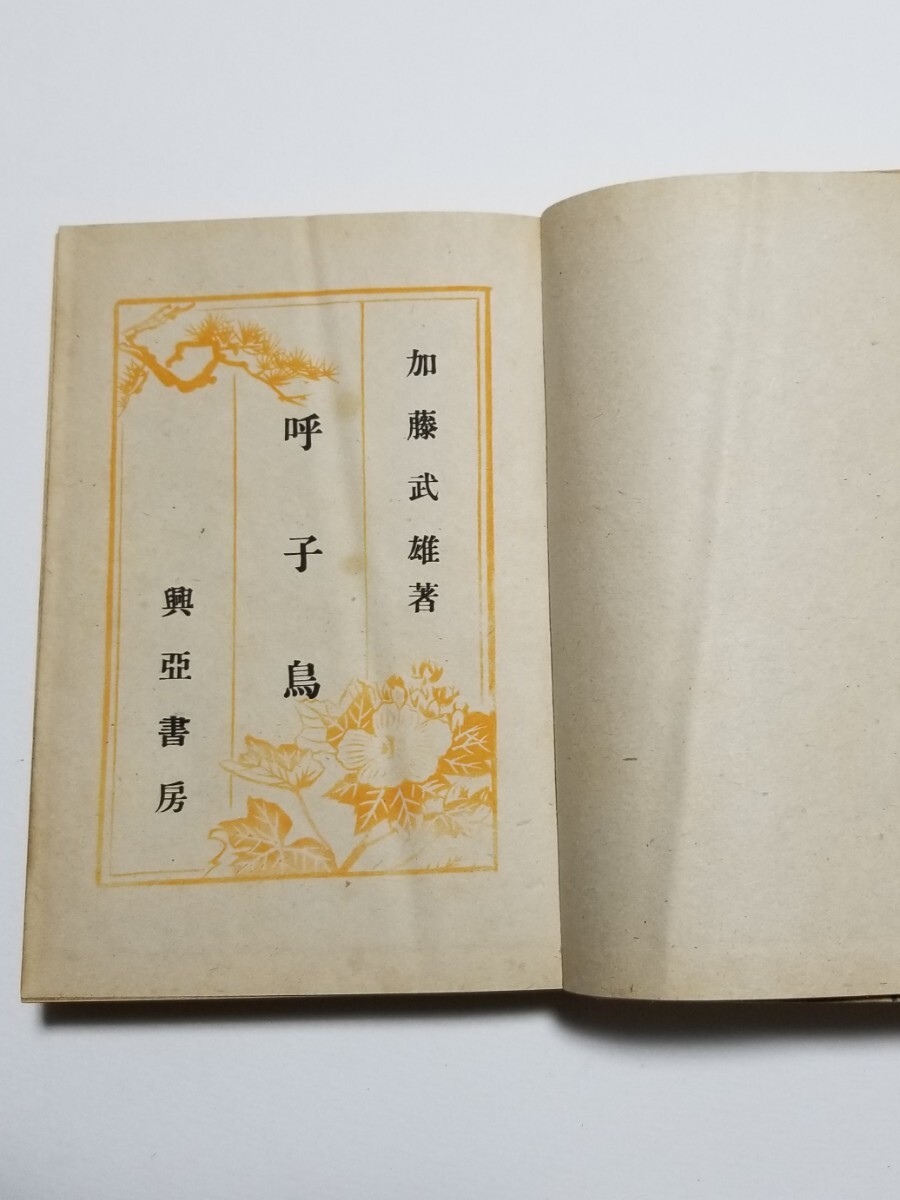 加藤武雄著
呼子鳥
興亞書房